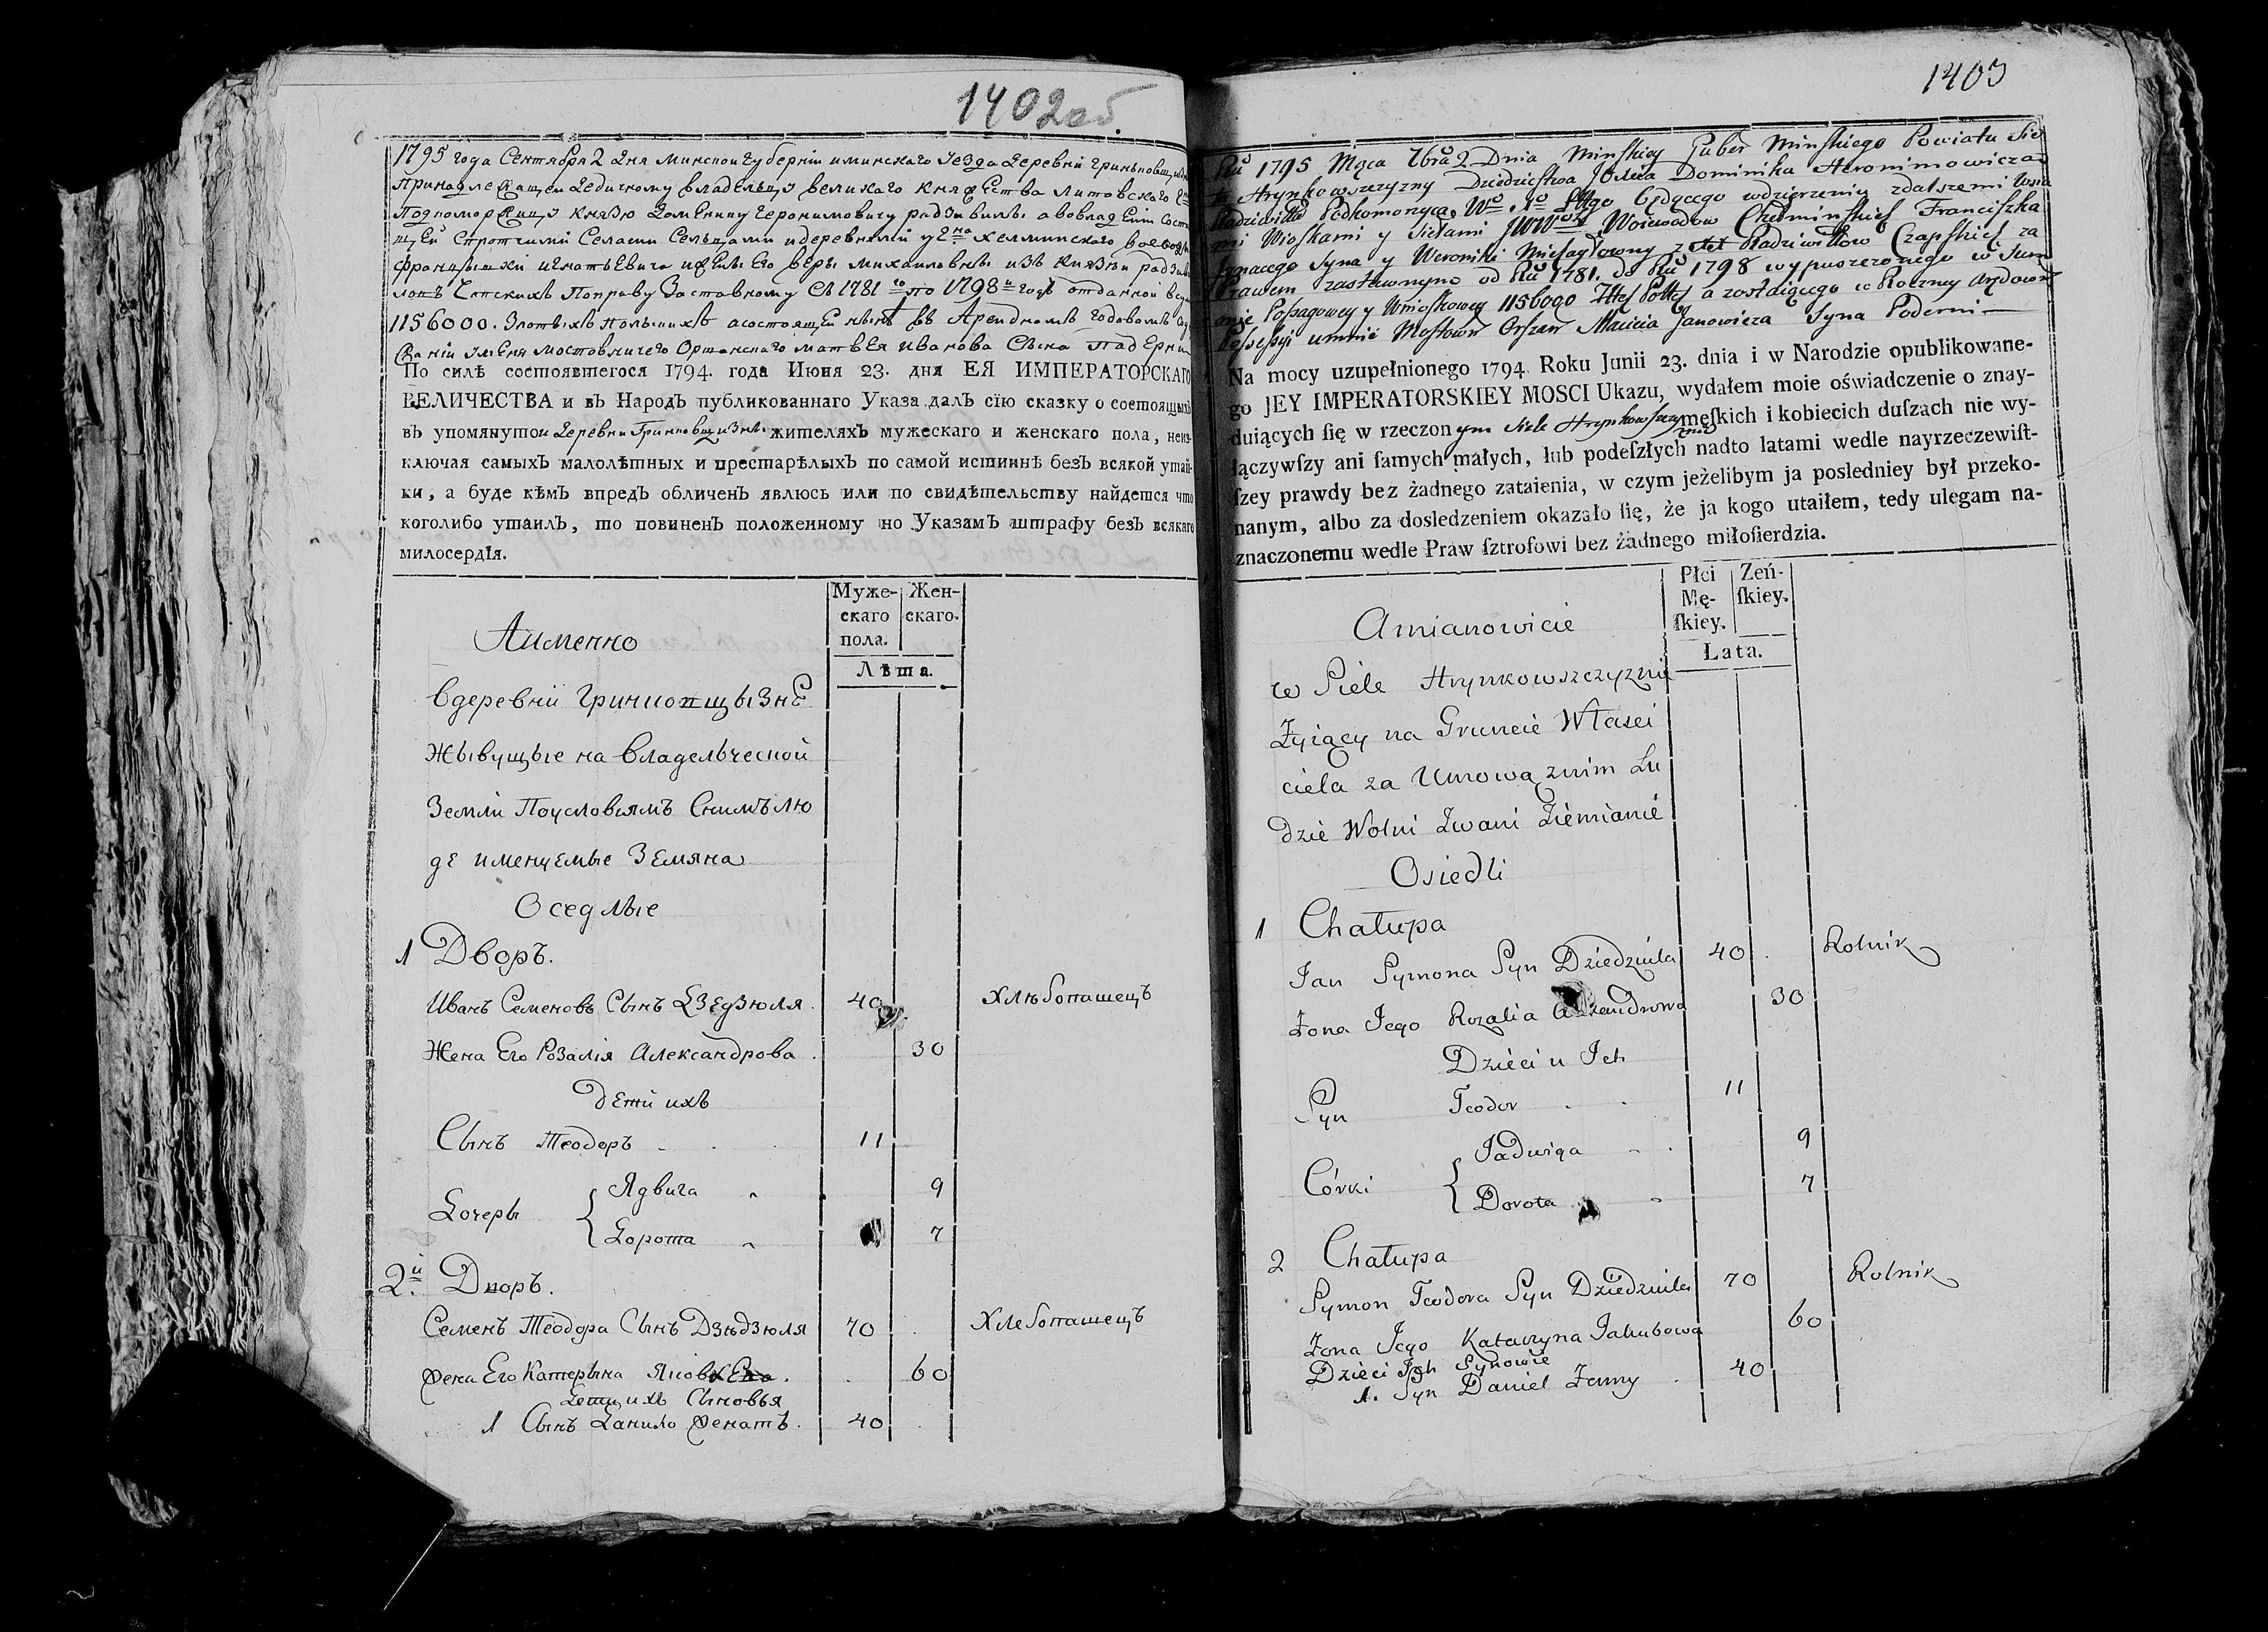 1402об.
1795 года Сентября 2 дня минской губерніи и минскаго уезда деревни
принадлежащей дедичному владельцу великаго княжества литовскаго
подкоморжицу князю доменику геронимовичу радзивилѣ а во владеніи состо
щей с протчими селами сельцами и деревнями у хелминскаго воеводы
францышки игнатьевича и жены его веры михаиловны изъ князей радзиви
ловъ Чапскихъ по праву заставному съ 1781го по 1798й годъ отданной в су
1156000. злотыхъ польскихъ а состоящей нынѣ въ арендномъ годовомъ сод
жаніи у меня мостовничего Оршанскаго матвея иванова сына падерни
По силѣ состоявшегося 1794. года Июня 23. дня ЕЯ ИМПЕРАТОРСКАГО
ВЕЛИЧЕСТВА и въ Народъ публикованнаго Указа далъ сїю сказку о состоящихъ
въ упомянутои деревни Гринковщизнѣ жителяхъ мужескаго и женскаго пола, неиз-
ключая самыхъ малолѣтныхъ и престарѣлыхъ по самой истиннѣ безъ всякой утай-
ки, а буде кѣмъ впредь обличенъ явлюсь или по свидѣтельству найдется что
коголибо утаилъ, то повиненъ положенному по Указамъ штрафу безъ всякаго
милосердїя.
Муже-
скаго
пола.
Жен-
скаго.
Лѣта.
Аименно
в деревни Гринковщызнѣ
жывущые на владельческой
земли по условіямъ с нимъ лю
де именуемые земяна
Оседлые
1 Дворъ.
Иванъ Семеновъ Сынъ Дзедзюля. 40 хлѣбопашецъ
Жена Его Розалія Александрова. 30
дети ихъ
Сынъ Теодоръ 11
Дочеры { Ядвига 9
Дорота 7
2й. Дворъ.
Семенъ Теодора Сынъ Дзѣдзюля 70 хлебопашецъ
жена Его Катерына 60
дети ихъ Сыновья
1 Сынъ Данило женатъ. 40
1403
Rku 1795 Mąca 7bra 2 Dnia Minskiey Guber Minskiego Powiatu Sie
ła Hrynkowszczyzny Dziedzictwa JOXcia Dominika Heronimowicza
Radziwiłła Podkomorzyca Wo Xo Littgo będącego w dzierzeniu z dalszemi
mi Wioskami y Siełami JWWch Woiewodow Chełminskich Franciszka
Ignacego Syna y Weroniki Michayłowny z Xtt Radziwiłłow Czapskich za
Prawem zastawnym od Rku 1781. do Rku 1798 wypuszczonego w Sum
mie Posagowey y Wnioskowey 1156000 Złłch Pollch a zostaiącego w Roczney Arędown
Possessyi u mnie Mostown Orszan Macieia Janowicza Syna Poderni
Na mocy uzupełnionego 1794 Roku Junii 23. dnia i w Narodzie opublikowane-
go JEY IMPERATORSKIEY MOSCI Ukazu, wydałem moie oświadczenie o znay-
duiących ſię w rzeczonym Siele Hrynkowszczyznie męſkich i kobiecich duſzach nie wy-
łączywſzy ani ſamych małych, lub podeſzłych nadto latami wedle nayrzeczewiſt-
ſzey prawdy bez żadnego zataienia, w czym jeżelibym ja posledniey był przeko-
nanym, albo za dosledzeniem okazało ſię, że ja kogo utaiłem, tedy ulegam na-
znaczonemu wedle Praw ſztrofowi bez żadnego miłoſierdzia.
Płci
Mę-
ſkiey.
Zeń-
ſkiey.
Lata.
A mianowicie
w Siele Hrynkowszczyznie
Żyiący na Gruncie Własci
ciela za Umową z nim Lu
dzie Wolni Zwani Ziemianie
Osiedli
1 Chałupa
Jan Symona Syn Dziedziula 40 Rolnik
Żona Jego Rozalia Alexandrowa 30
Dzieci u Ich
Syn Teodor 11
Córki { Jadwiga 9
Dorota 7
2 Chałupa
Symon Teodora Syn Dziedziula 70 Rolnik
Żona Jego Katarzyna Jakubowa 60
Dzieci Ich Synowie
1. Syn Daniel Żenny 40